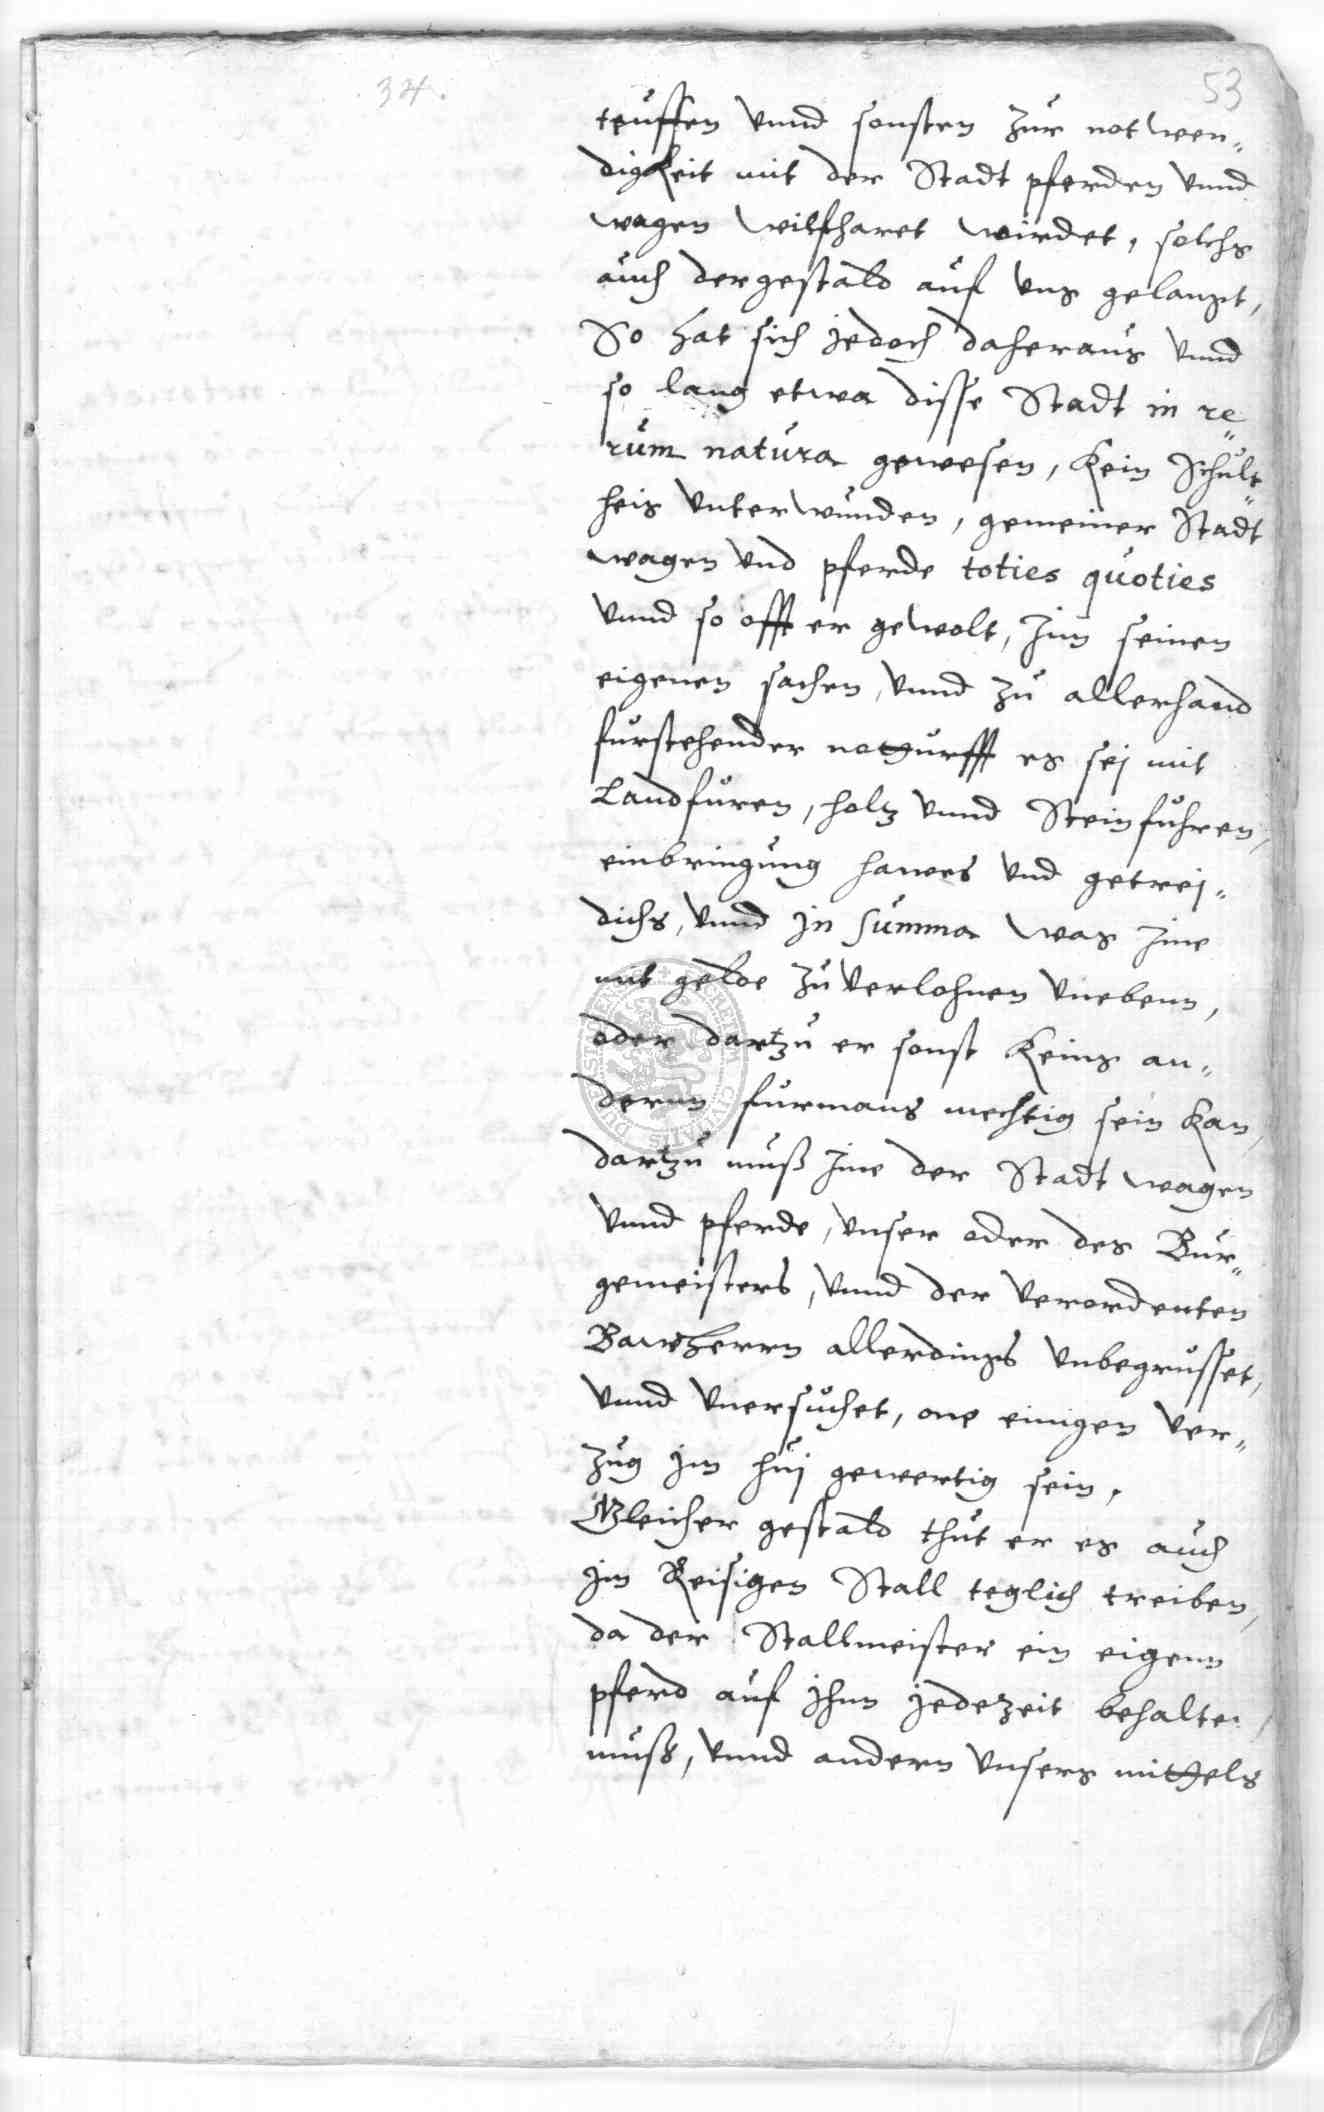 34.
53
teuffen vnnd sonsten zur notwen„
digkeit mit der Stadt pferden vnnd
wagen wilfharet wirdet, solchs
auch dergestald auf vns gelangt,
So hat sich jedoch daheraus vnnd
so lang etwa disse Stadt in re„
rum natura gewesen, kein Schult„
heis vnterwunden, gemeiner Stadt
wagen vnd pferde toties quoties
vnnd so offt er gewolt, Inn seinen
eigenen sachen, vnnd zu allerhand
furstehender notturfft es sej mit
Landfuren, holtz vnnd Steinfuhren,
einbringung hawes vnd getrej„
dichs, vnnd in summa was Ime
mit gelde zu verlohnen vneben,
oder dartzu er sonst keins an„
dernn furmans mechtig sein kan,
dartzu muß Ime der Stadt wagen
vnnd pferde, vnser oder des Bur„
gemeisters, vnnd der verordenten
Bawherrn allerdings vnbegrusset,
vnnd vnersuchet, one einigen ver„
zug im huj gewertig sein.
Gleicher gestald thut er es auch
im Reisigen Stall teglich treiben,
da der Stallmeister ein eigenn
pferd auf ihnn jedezeit behalten
muß, vnnd andern vnsers mittels